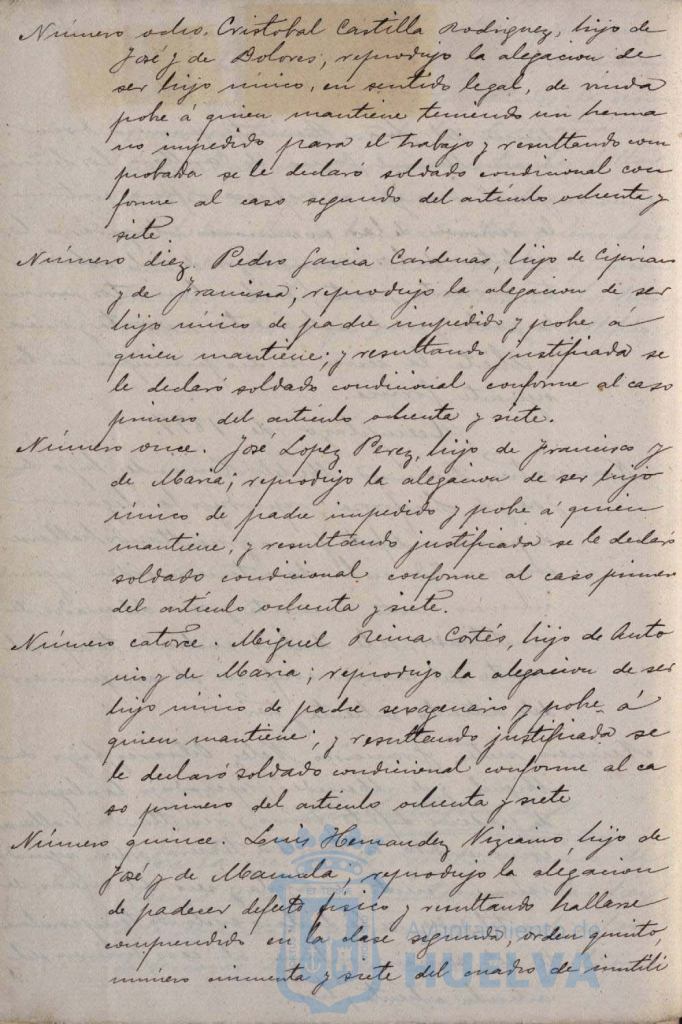 Número ocho. Cristobal Castilla Rodriguez, hijo de
José y de Dolores, reprodujo la alegacion de
ser hijo único, en sentido legal, de viuda
pobre á quien mantiene teniendo un herma
no impedido para el trabajo y resultando com
probada se le declaró soldado condicional con
forme al caso segundo del artículo ochenta y
siete.
Número diez. Pedro Garcia Cárdenas, hijo de Ciprian
y de Francisca; reprodujo la alegacion de ser
hijo único de padre impedido y pobre á
quien mantiene; y resultando justificada se
le declaró soldado condicional conforme al caso
primero del artículo ochenta y siete.
Número once. José Lopez Perez, hijo de Francisco y
de Maria; reprodujo la alegacion de ser hijo
único de padre impedido y pobre á quien
mantiene, y resultando justificada se le declaró
soldado condicional conforme al caso primero
del artículo ochenta y siete.
Número catorce. Miguel Reina Cortés, hijo de Anto
nio y de Maria; reprodujo la alegacion de ser
hijo único de padre sexagenario y pobre á
quien mantiene; y resultando justificada se
le declaró soldado condicional conforme al ca
so primero del artículo ochenta y siete
Número quince. Luis Hernandez Vizcaino, hijo de
José y de Manuela, reprodujo la alegacion
de padecer defecto físico y resultando hallarse
comprendido en la clase segunda, orden quinto,
número cincuenta y siete del cuadro de inutili
Ayuntamiento de
HUELVA